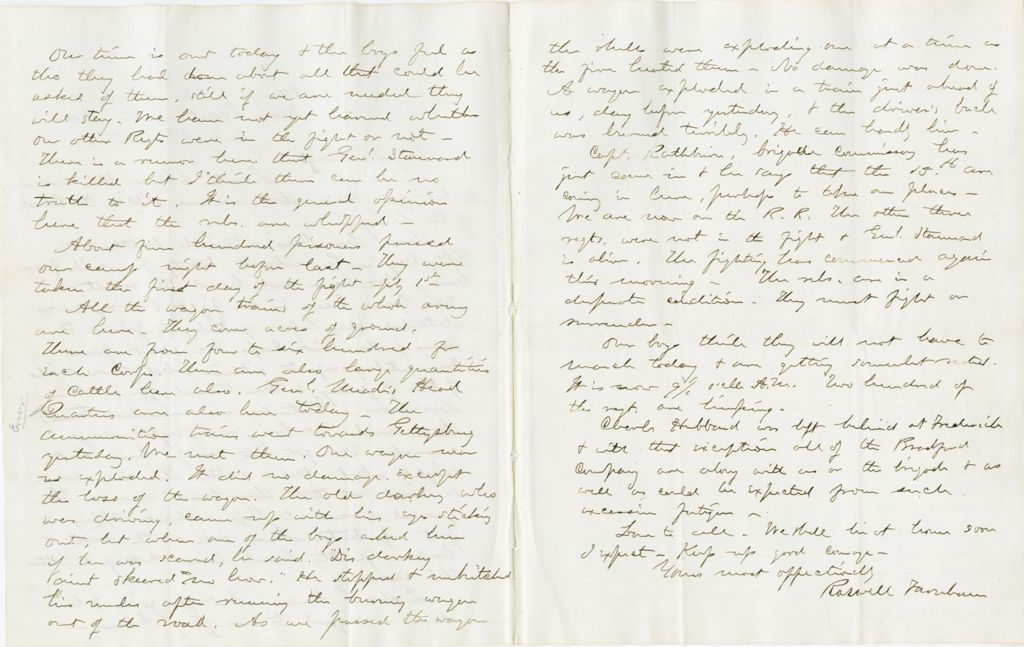 Our time is out today & the boys feel as
tho they had done about all that could be
asked of them, still if we are needed they
will stay. We have not yet learned whether
our other Regts were in the fight or not -
There is a rumor here that Genl. Stannard
is killed but I think there can be no
truth to it. It is the general opinion
here that the rebs. are whipped -
About five hundred prisoners passed
our camp night before last - They were
taken the first day of the fight July 1st
All the wagon trains of the whole army
are here - They cover acres of ground.
There are from four to six hundred for
each Corps. There are also large quantities
of Cattle here also. Genl. Meade's Head
Quarters are also here today - The
Error
ammunition trains went towards Gettysburg
yesterday. We met them. One wagon near
us exploded. It did no damage except
the loss of the wagon. The old darkey who
was driving, came up with his eyes sticking
out, but when one of the boys asked him
if he was scared, he said. "Dis darkey
aint skeered no how." He stopped & unhitched
his mules after running the burning wagon
out of the road. As we passed the wagon
the shells were exploding one at a time as
the fire heated them - No damage was done.
A wagon exploded in a train just ahead of
us, day before yesterday, & the driver's back
was burned terribly. He can hardly live -
Capt. Rathburn, brigade commissary has
just come in & he says that the 15th are
coming in here, perhaps to take our places -
We are now on the R. R. The other three
regts. were not in the fight & Genl Stannard
is alive. The fighting has commenced again
this morning - The rebs. are in a
desperate condition. They must fight or
surrender -
Our boys think they will not have to
march today & are getting somewhat rested.
It is now 9 1/2 o'clk A.M. Two hundred of
the regt. are limping.
Charls Hibbard was left behind at Frederick
& with that exception all of the Bradford
Company are along with us or the brigade & as
well as could be expected from such
excessive fatigue -
Love to all - We shall be at home soon
I expect - Keep up good courage -
Yours most affectively
Roswell Farnham